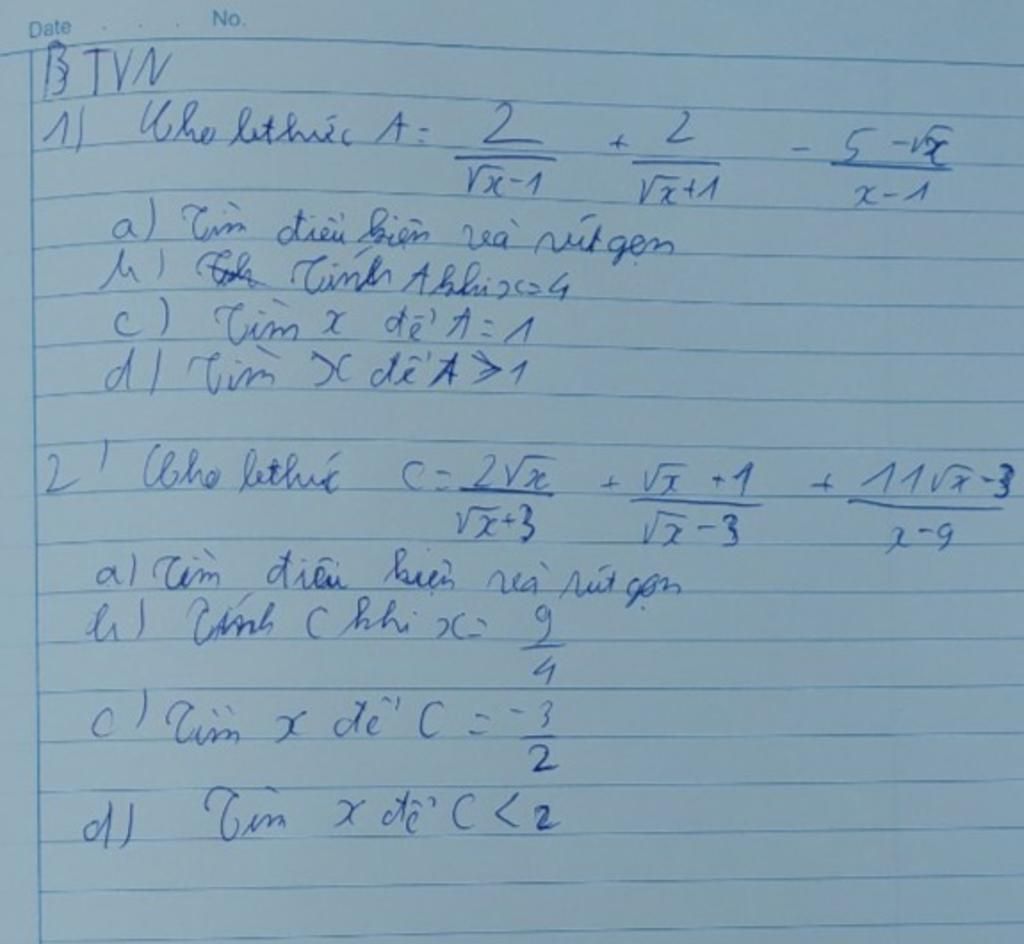 Date . . . No.
BTVN
1) Cho bthức A = 2/(√x-1) + 2/(√x+1) - (5-√x)/(x-1)
a) Tìm điều kiện và rút gọn
b) Tính A khi x=4
c) Tìm x để A=1
d) Tìm x để A≥1
2) Cho bthức C = 2√x/(√x+3) + (√x+1)/(√x-3) + (11√x-3)/(x-9)
a) Tìm điều kiện và rút gọn
b) Tính C khi x= 9/4
c) Tìm x để C = -3/2
d) Tìm x để C<2